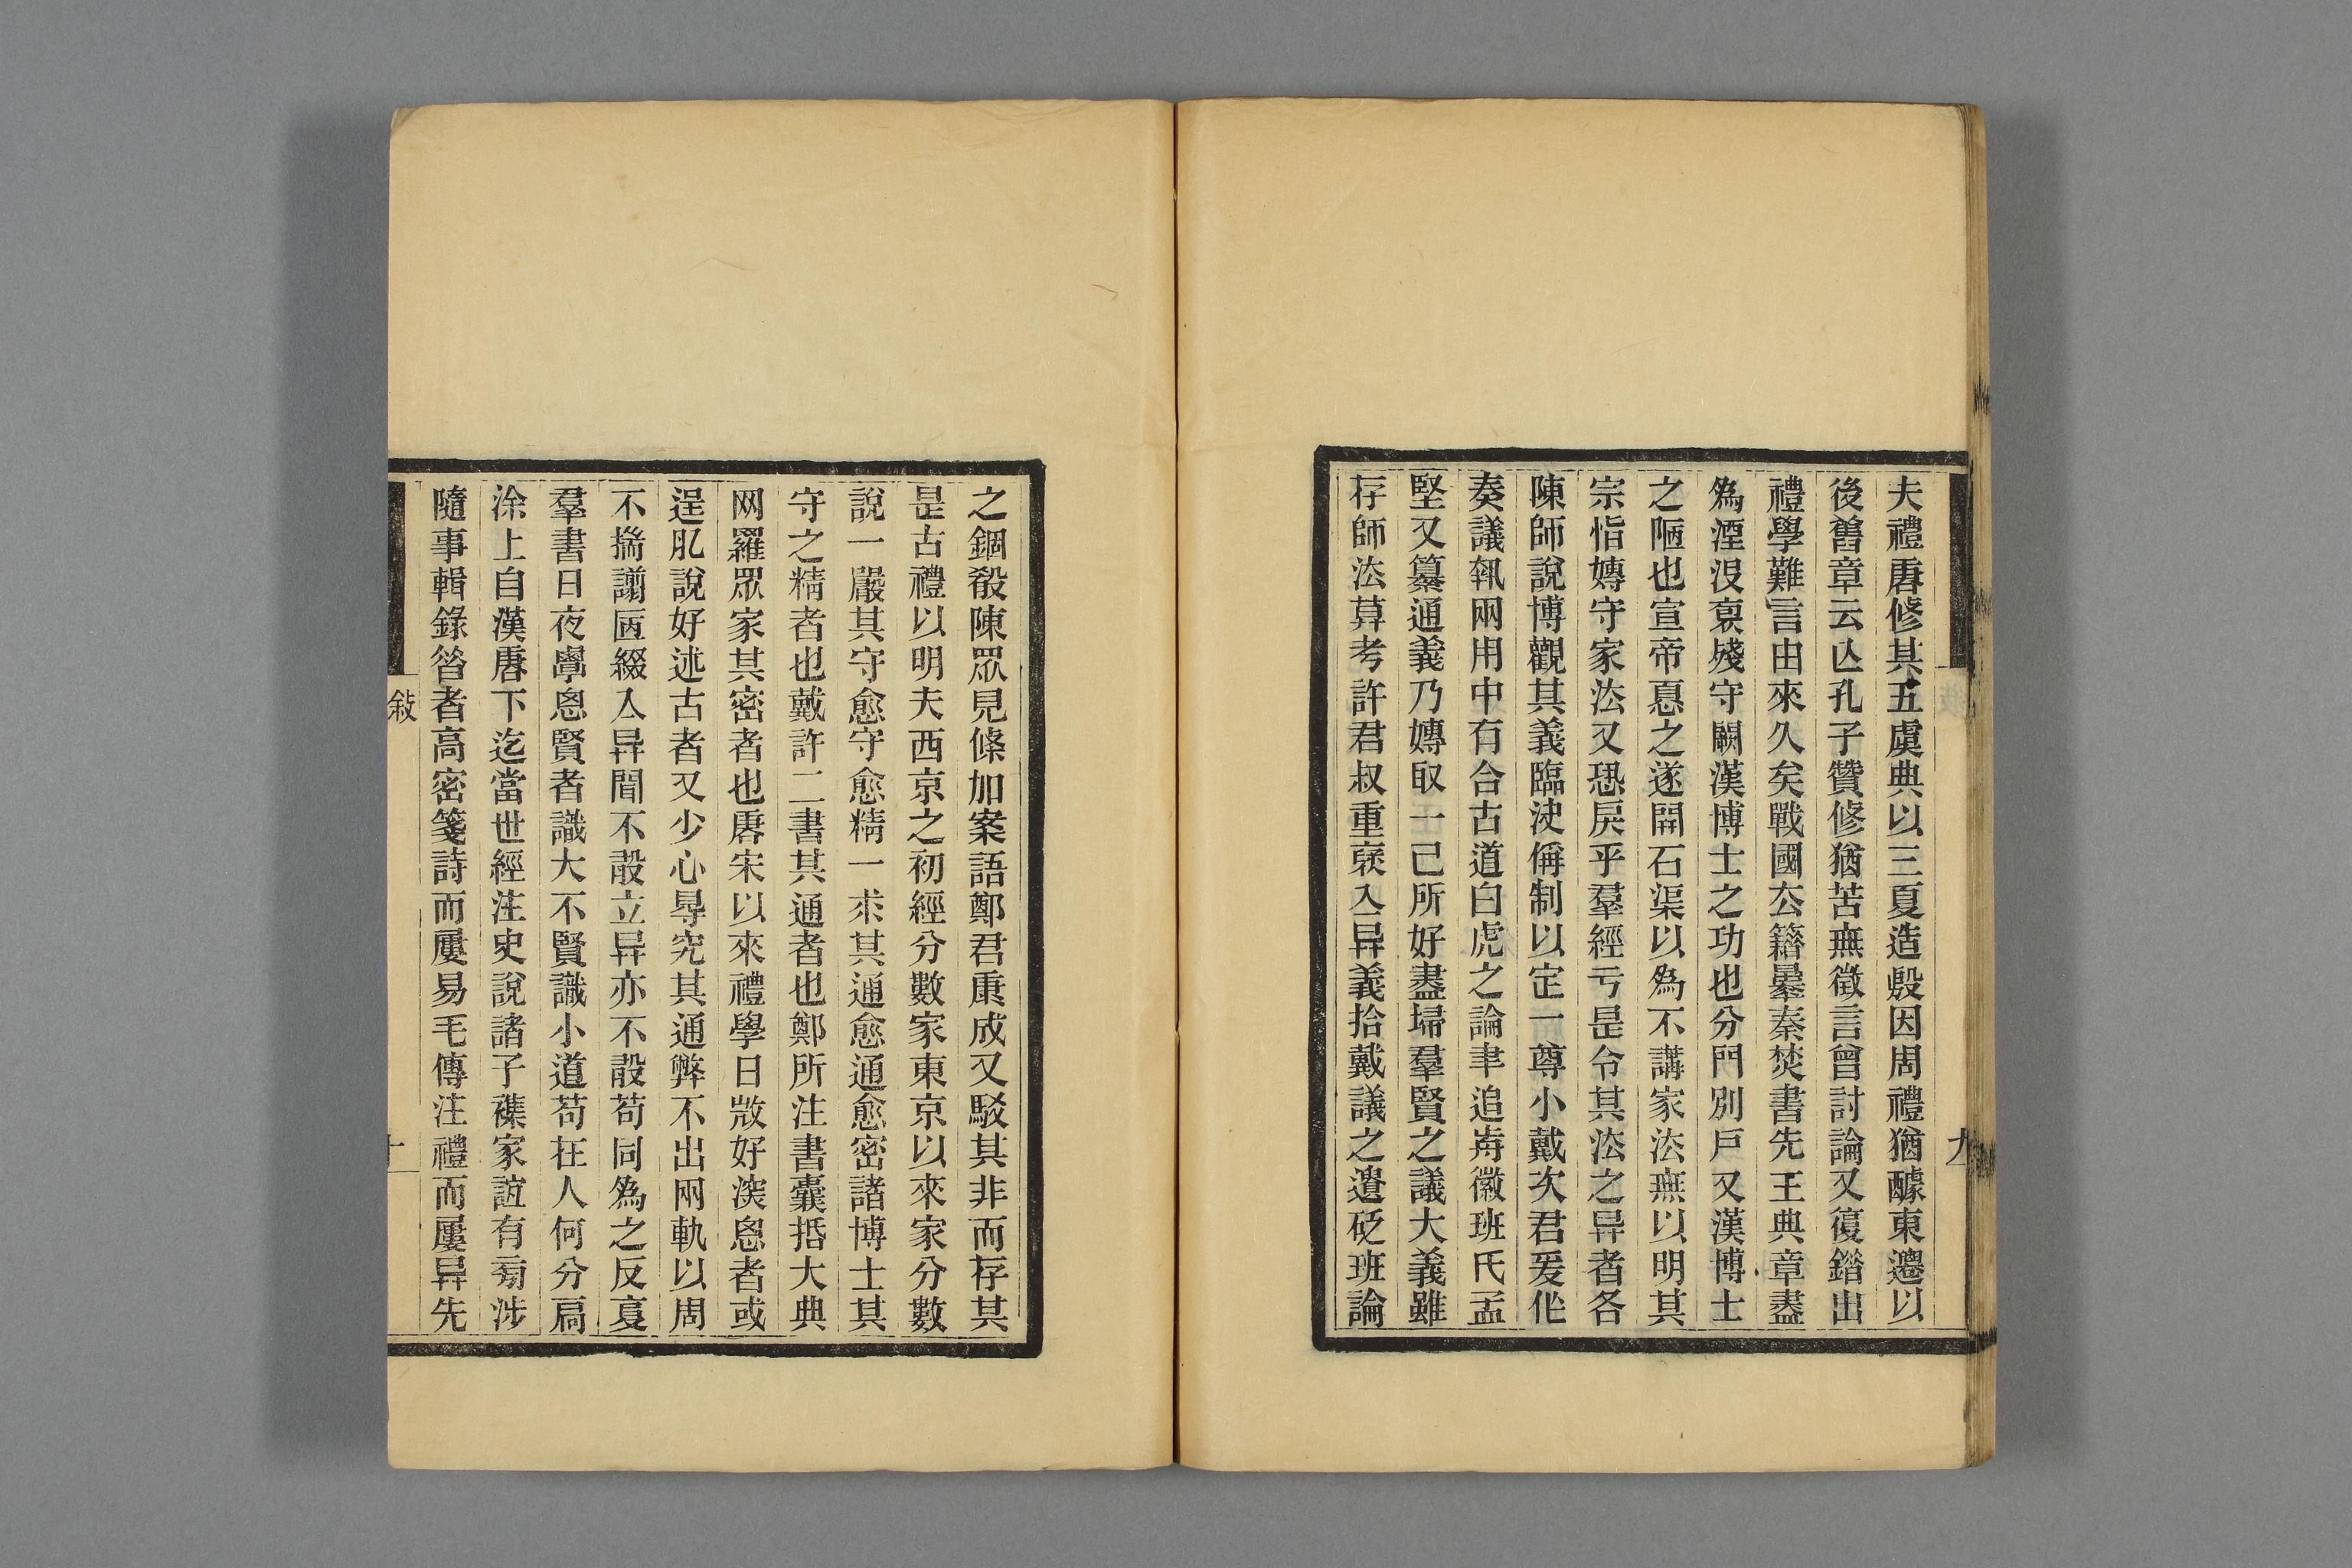 夫禮唐修其五虞典以三夏造殷因周禮猶醵東遷以
後舊章云亾孔子贊修猶苦無徵言曾討論又復鍇出
禮學難言由來久矣戰國厺籍曓秦焚書先王典章盡
爲湮沒裒殘守闕漢博士之功也分門別戶又漢博士
之陋也宣帝憙之遂開石渠以爲不講家法無以明其
宗恉嫥守家法又恐戾乎羣經亏是令其法之异者各
陳師說博觀其義臨決偁制以定一尊小戴次君爰作
奏議執兩用中有合古道白虎之論聿追歬徽班氏孟
堅又纂通義乃嫥取一己所好盡埽羣賢之議大義雖
存師法莫考許君叔重裒入异義拾戴議之遺砭班論
之錮殽陳眾見條加案語鄭君康成又駁其非而存其
是古禮以明夫西京之初經分數家東京以來家分數
說一嚴其守愈守愈精一求其通愈通愈密諸博士其
守之精者也戴許二書其通者也鄭所注書囊括大典
网羅眾家其密者也唐宋以來禮學日微好深思者或
逞肊說好述古者又少心尋究其通弊不出兩軌以周
不揣譾陋綴入异聞不敢立异亦不敢苟同爲之反夏
羣書日夜覃思賢者識大不賢識小道苟在人何分扁
涂上自漢唐下迄當世經注史說諸子襍家誼有旁涉
隨事輯錄昝者高密箋詩而屢易毛傳注禮而屢异先
敍
九
十